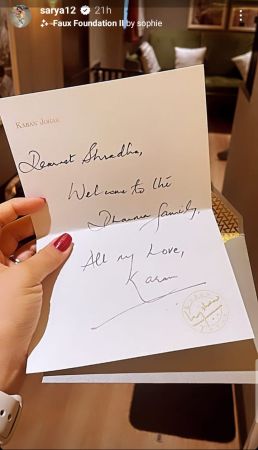 sarya12 21h
Faux Foundation II by sophie
KARAN JOHAR
Dearest Shradha,
Welcome to the
Dharma family.
All my love,
Karan